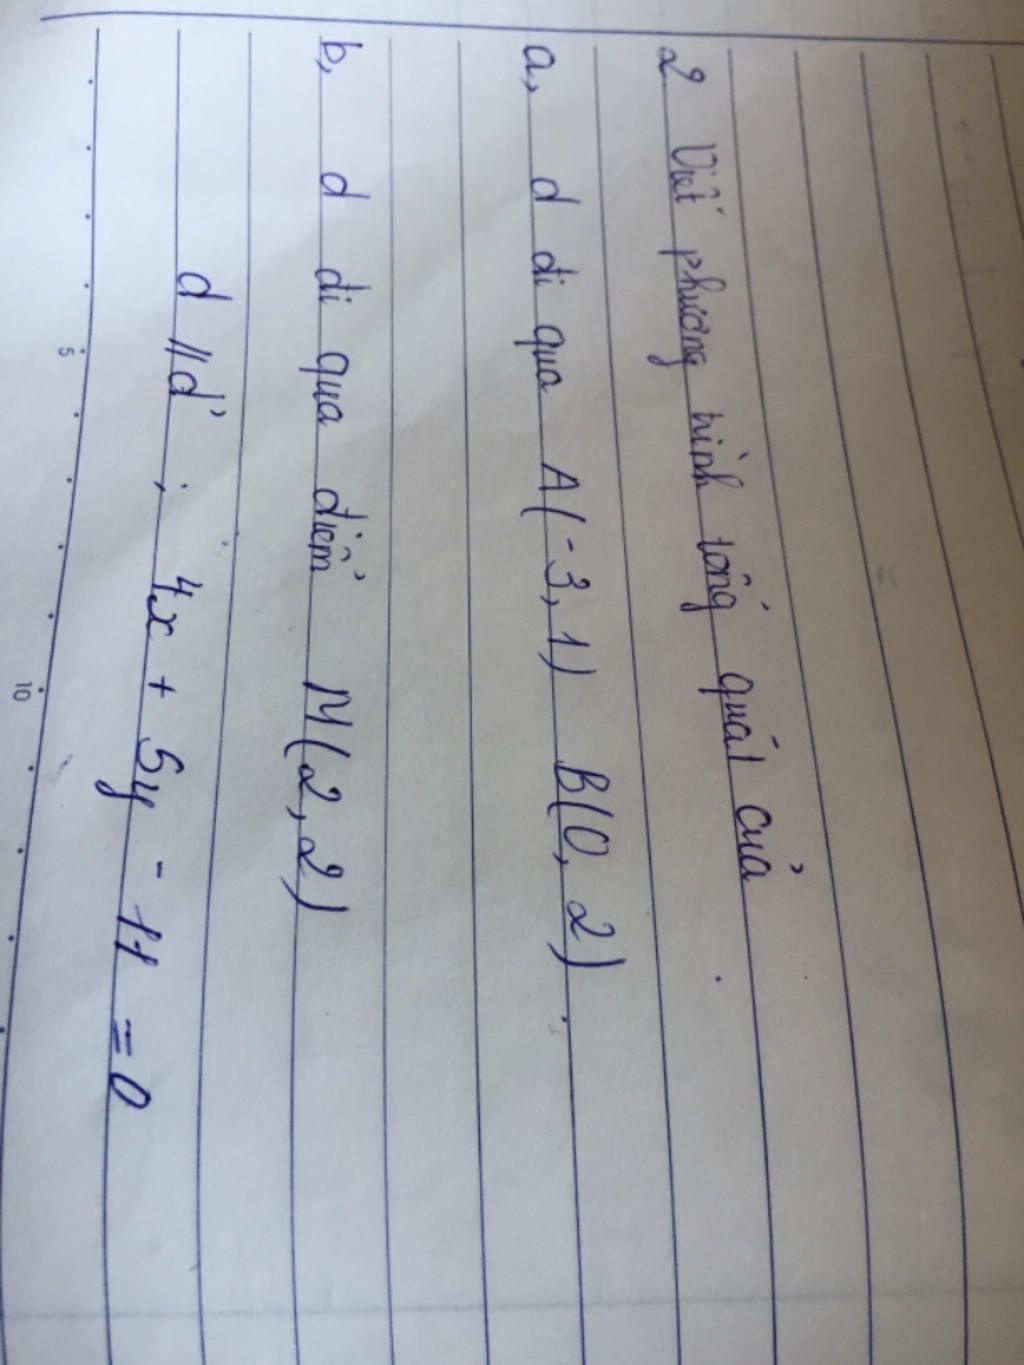 2 Viết phương trình tổng quát của
a, d đi qua A(-3,1) B(0,2).
b, d đi qua điểm M(2,2)
d // d' : 4x + 5y - 11 = 0
5
10